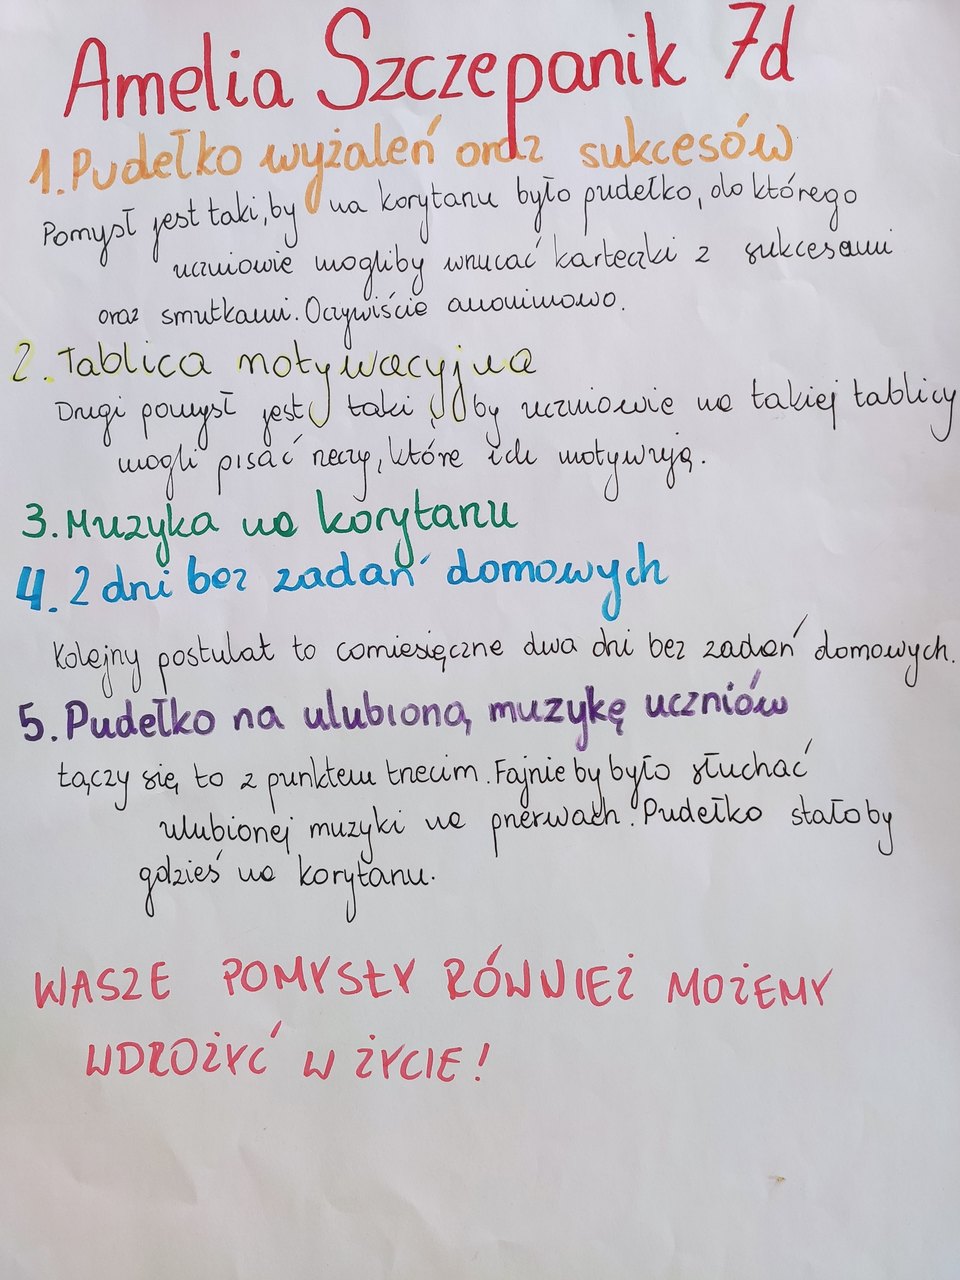 Amelia Szczepanik 7d
1. Pudełko wyżaleń oraz sukcesów
Pomysł jest taki, by na korytarzu było pudełko, do którego
uczniowie mogliby wrzucać karteczki z sukcesami
oraz smutkami. Oczywiście anonimowo.
2. Tablica motywacyjna
Drugi pomysł jest taki, by uczniowie na takiej tablicy
mogli pisać rzeczy, które ich motywują.
3. Muzyka na korytarzu
4. 2 dni bez zadań domowych
Kolejny postulat to comiesięczne dwa dni bez zadań domowych.
5. Pudełko na ulubioną muzykę uczniów
Łączy się to z punktem trzecim. Fajnie by było słuchać
ulubionej muzyki na przerwach. Pudełko stałoby
gdzieś na korytarzu.
WASZE POMYSŁY RÓWNIEŻ MOŻEMY
WDROŻYĆ W ŻYCIE!